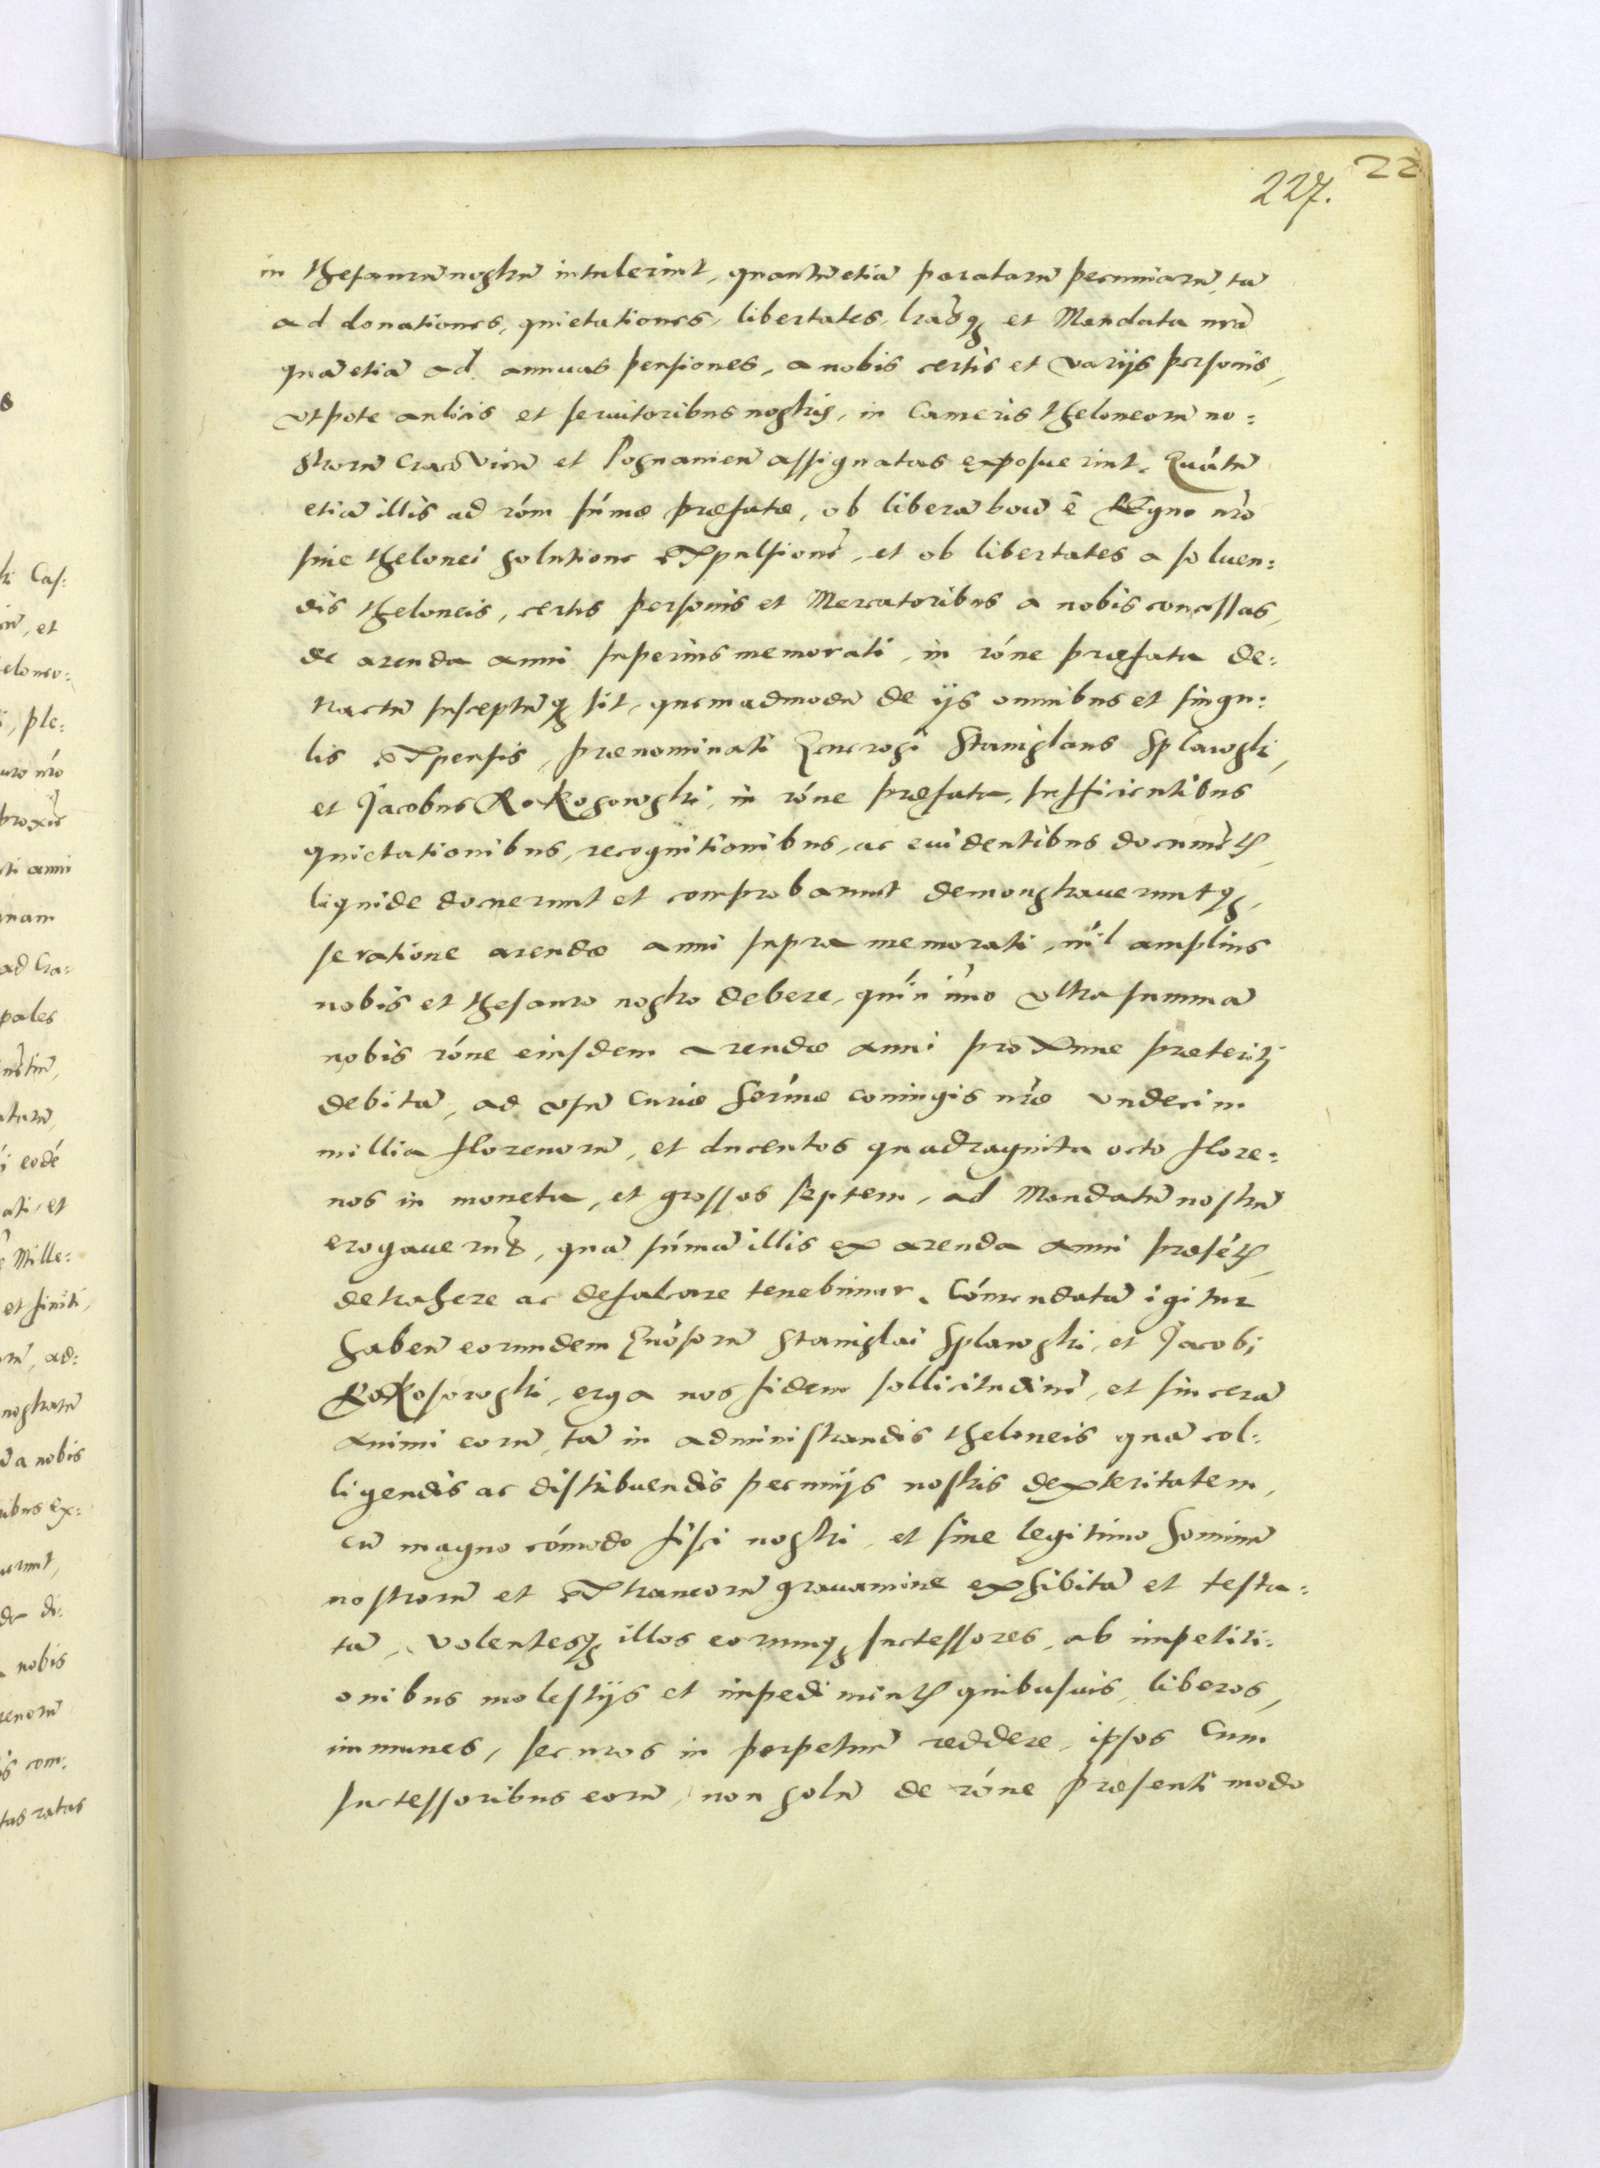 227.
22
in thesaurū nostrū intulerint, quantū etiā paratarū pecuniarū, tā
ad donationes, quietationes, libertates, lrãsq et Mandata nrã
quā etiā ad annuas pensiones, a nobis certis et varijs personis,
vtpote aulicis et seruitoribus nostris, in Cameris theloneorū no:
strorū Cracovien̄ et Posnanien̄ assignatas exposuerint, Quātū
etiā illis ad rōm sūmæ præfatæ, ob liberā boū ē Regno nr̄o
sine thelonei solutione expulsionē, et ob libertates a soluen:
dis theloneis, certis personis et Mercatoribus a nobis concessas,
de arenda anni superius memorati, in rōne præfata de:
tractū susceptūq sit, quemadmodū de ijs omnibus et singu:
lis expensis, prænominati Generosi Stanislaus Splawski,
et Jacobus Rokosowski, in rōne præfata, sufficientibus
quietationibus, recognitionibus, ac euidentibus documēt,
liquide docuerunt et comprobarunt demonstraueruntq,
se ratione arendæ anni supra memorati, nīl amplius
nobis et thesauro nostro debere, quin imo vltra summā
nobis rōne eiusdem arendæ anni proxime præteriti
debitā, ad vsū Curiæ Serm̄æ coniugis nr̄æ vndecim
millia florenorū, et ducentos quadraginta octo flore:
nos in moneta, et grossos septem, ad Mandatū nostrū
erogauerunt, quā sūmā illis ex arenda anni præsēt,
detrahere ac defalcare tenebimur. Cōmendatā igitur
haben̄ eorundem Gnōsorū Stanislai Splawski, et Jacobi
Rokosowski, erga nos fidem sollicitudinē, et sincerā
animi eorū, tā in administrandis theloneis quā col:
ligendis ac distribuendis pecunijs nostris dexteritatem,
cū magno cōmodo fisci nostri, et sine legitimo hominū
nostrorū et extraneorū grauamine exhibitā et testa:
tā, volentesq illos eorumq successores, ab impetiti:
onibus molestijs et impedimint quibusuis, liberos,
immunes, securos in perpetuū reddere, ipsos cum
successoribus eorū, non solū de rōne præsenti modo